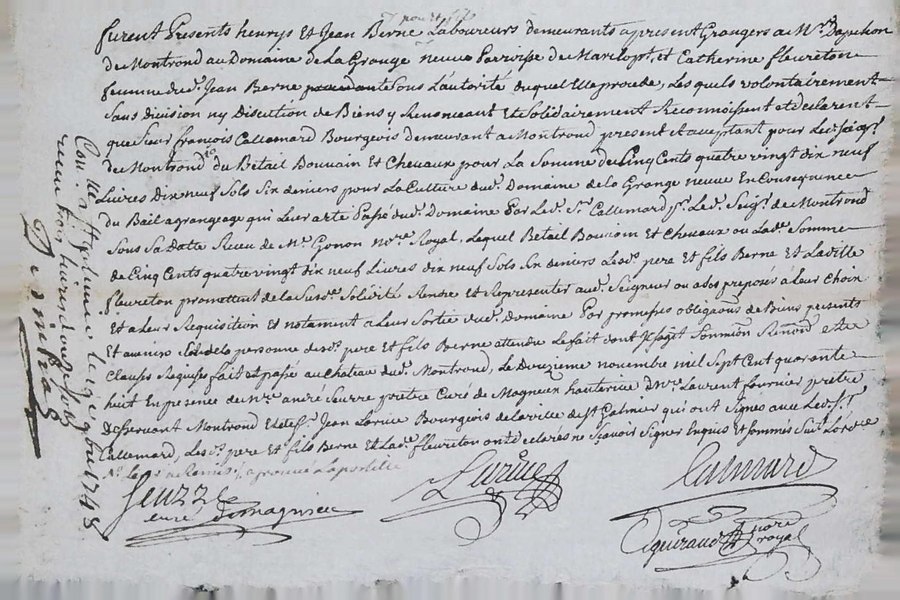 pere et fils
furent Presents henrys Et Jean Berne Laboureurs demeurants apresent Grangers a Mr. Dapchon
de Montrond au Domaine de La Grange neuve Parroisse de Marclopt, et Catherine fleureton
femme dud. Jean Berne sous L'autorité duquel Elle procede, Lesquels volontairement
Sans division ny Discution de Biens y Renonceant Et Solidairement Reconnoissent et declarent
que Sieur françois Callemard Bourgeois demeurant a Montrond, present et acceptant pour Led. Seigr.
de Montrond du Betail Bouvain Et Chevaux pour La Somme de Cinq Cents quatre vingt dix neuf
Livres Dix neuf Sols Six deniers pour La Culture dud. Domaine de la Grange neuve En Consequence
du Bail a grangeage qui Leur a eté Passé dud. Domaine Par Led. Sr. Callemard pr. Led. Seigr. de Montrond
Sous Sa Datte Receu de Me. Gonon nore. Royal, Lequel Betail Bouvain Et Chevaux ou Lad. Somme
de Cinq Cents quatre vingt dix neuf Livres dix neuf Sols Six deniers Lesd. pere Et fils Berne et Laditte
fleureton promettent de la Susd. Solidité Rendre et Representer aud. Seigneur ou a Ses preposés a Leur Choix
Et a Leur Requisition et notament a Leur Sortie dud. Domaine Par promesses obligaons de Biens presents
Et avenirs de la personne desd. pere et fils Berne attendu Le fait dont Il s'agit Soumission Renonon. Et
Clauses Requises fait et passé au Chateau dud. Montrond, Le Douzieme novembre mil Sept Cent quarante
huit En presence de Mre. andré Seurre pretre Curé de Magneux hauterive & Mre. Laurent fournier pretre
desservant Montrond Jean Bourgeois de la ville de St. Galmier qui ont Signés avec Led. Sr.
Callemard, Lesd. pere et fils Berne Et Lad. fleureton ont declarés ne Sçavoir Signer Enquis Et Sommés
approuvé La postille
curé de magnieu
Calemard
nore
royal
Con. a St. galmier le 9bre 1748